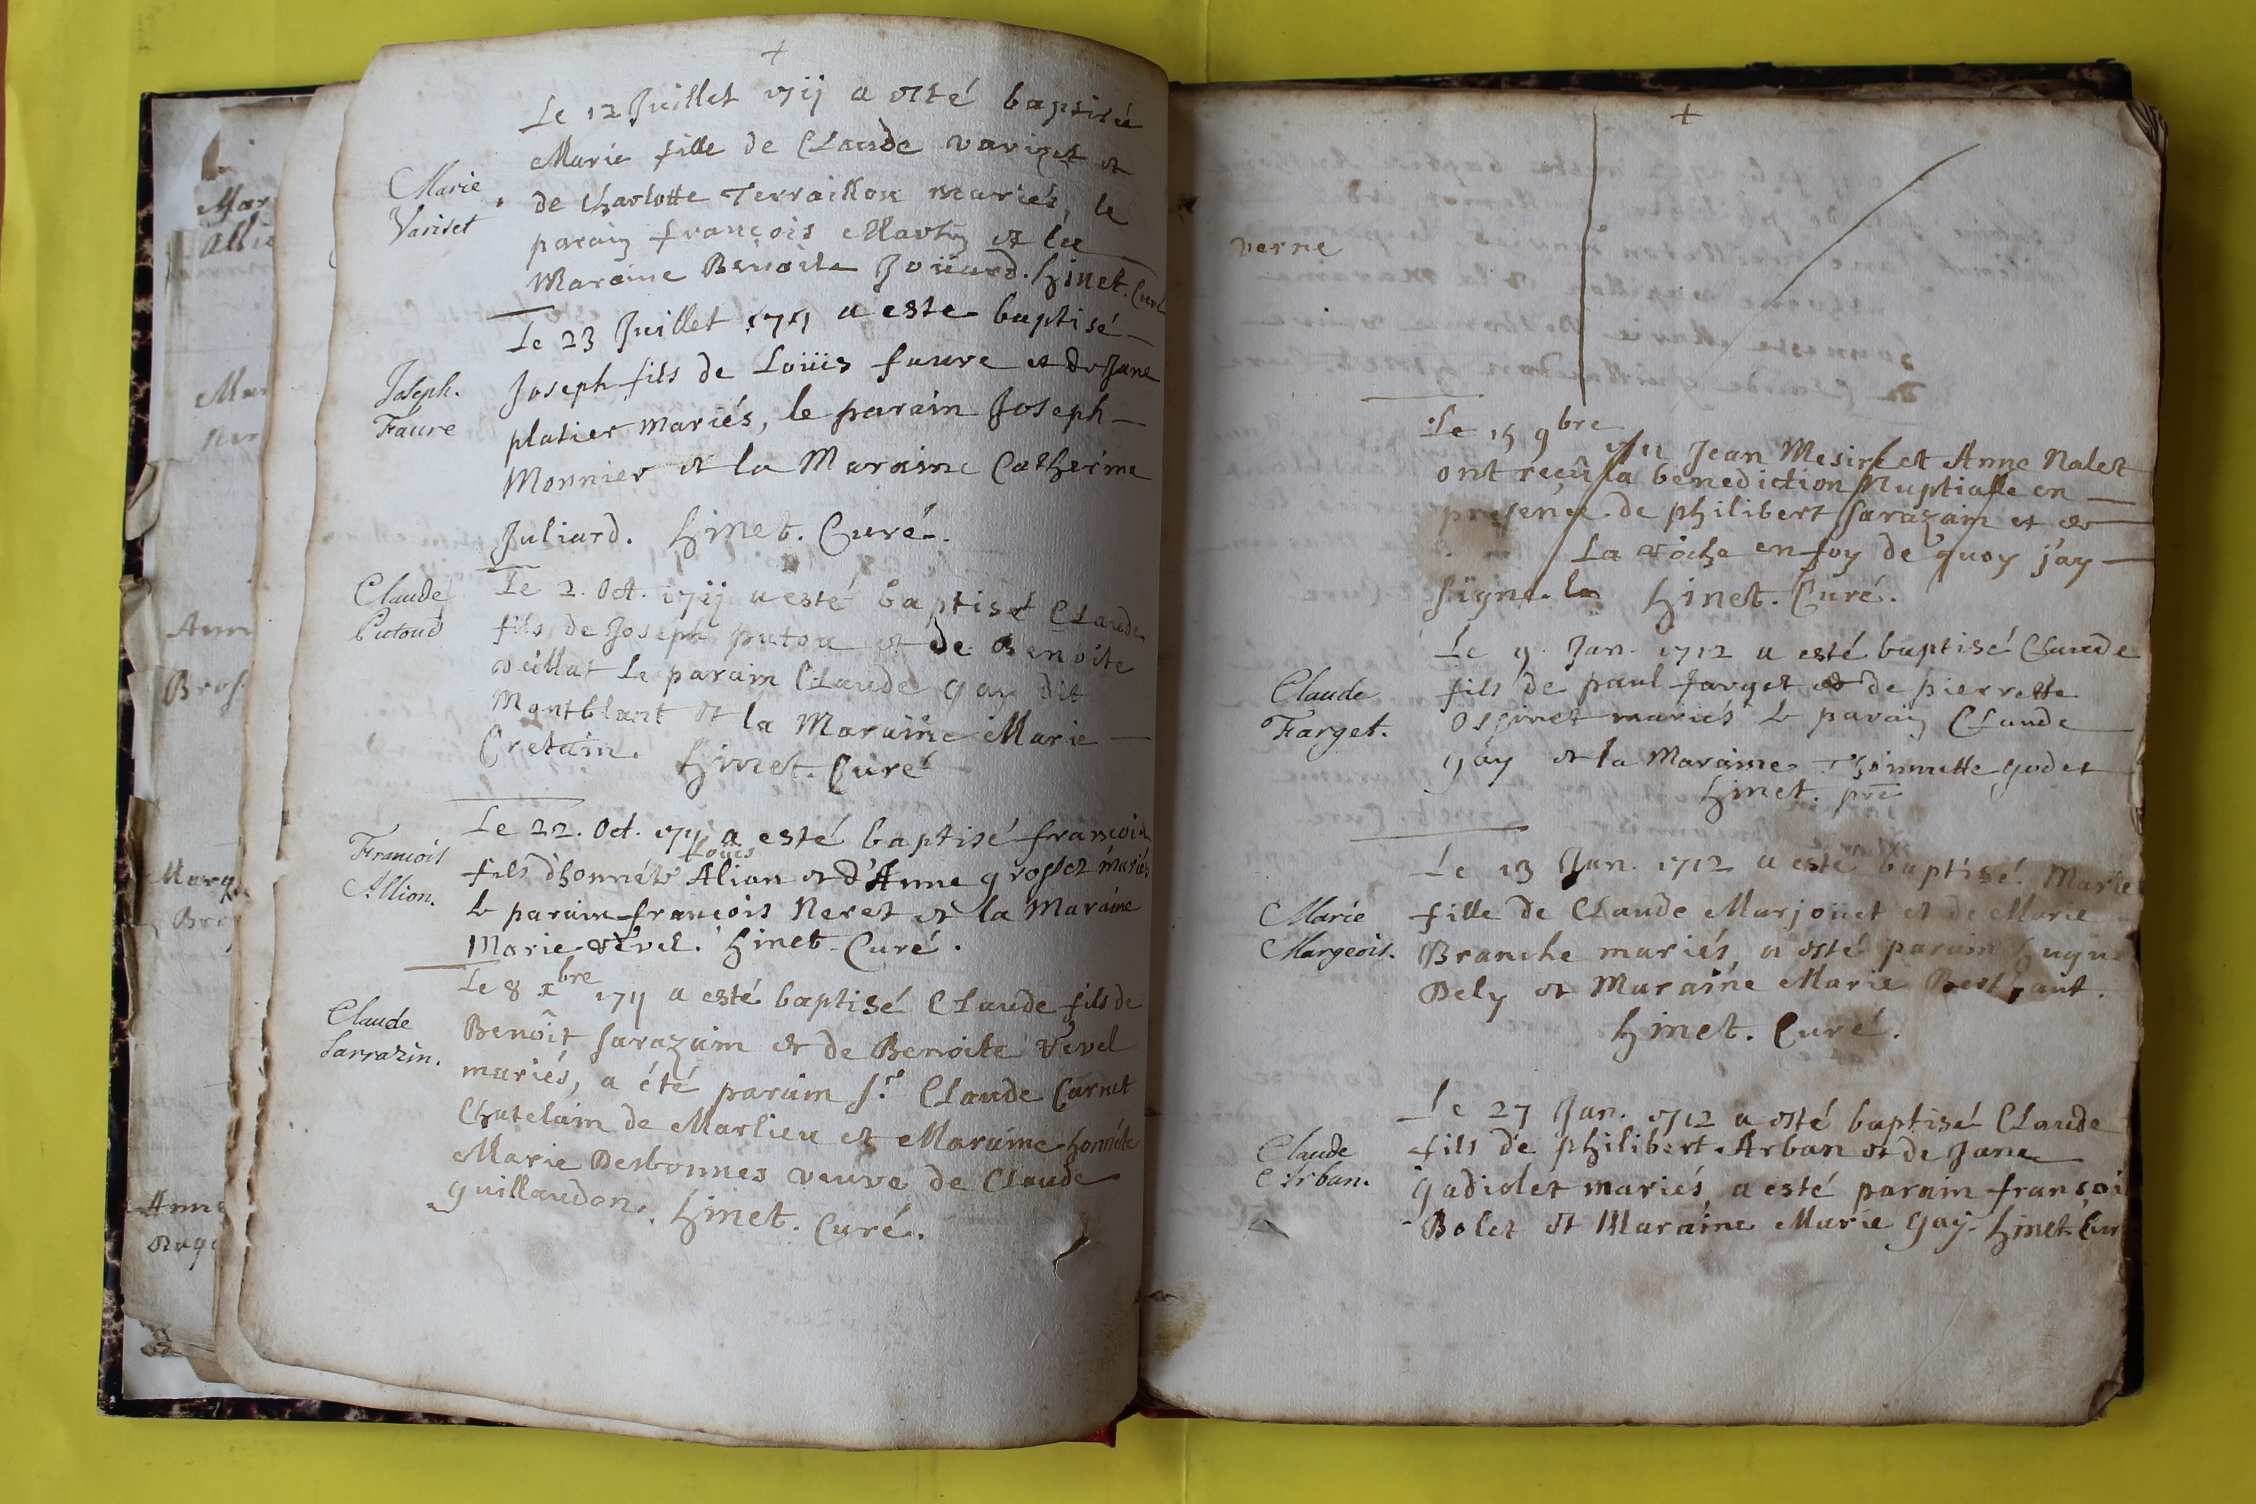 +
Le 12 Juillet 1711 a esté baptisée
Marie fille de Claude variset et
de Charlotte Terraillon mariés, le
parain françois Martin et la
Maraine Benoite Joüard. hinet. Curé
Marie
Variset
Le 23 Juillet 1711 a esté baptisé
Joseph fils de Loüis faure et de Jane
platier mariés, le parain Joseph
Monnier et la Maraine Catherine
Juliard. hinet. Curé.
Joseph.
Faure
Le 2. Oct. 1711 a esté baptisé Claude
fils de Joseph putou et de Benoite
veillat Le parain Claude gay dit
Montblant et la Maraine Marie
Cretain. hinet. Curé
Claude
Putoud
Le 22. Oct. 1711 a esté baptisé françois
Loüis
fils d'honnéte Alion et d'Anne grosset mariés
le parain françois Neret et la Maraine
Marie vevel. hinet. Curé.
François
Allion.
Le 8 xbre 1711 a esté baptisé Claude fils de
Benoît sarazain et de Benoite vevel
mariés, a été parain Sr. Claude Carnet
Chatelain de Marlieu et Maraine honnéte
Marie Desbonnes veuve de Claude
guillaudon. hinet. Curé.
Claude
Sarrazin.
+
verne
Le 15 9bre 1711 Jean Mesire et Anne Nalet
ont reçû la benediction Nuptialle en
presence de philibert sarazain et de
La roche en foy de quoy j'ay
signe. hinet. Curé.
Le 9 Jan. 1712 a esté baptisé Claude
fils de paul farget et de pierrette
mariés le parain Claude
gay et la Maraine godet
hinet. pre
Claude
Farget.
Le 13 Jan. 1712 a esté baptisé Marie
fille de Claude Marjoüet et de Marie
Branche mariés, a esté parain hugue
Dely et Maraine Marie
hinet. Curé.
Marie
Margeois.
Le 27 Jan. 1712 a esté baptisé Claude
fils de philibert Arban et de Jane
gadiolet mariés, a esté parain françoi
Bolet et Maraine Marie gay. hinet Cur
Claude
Arban.